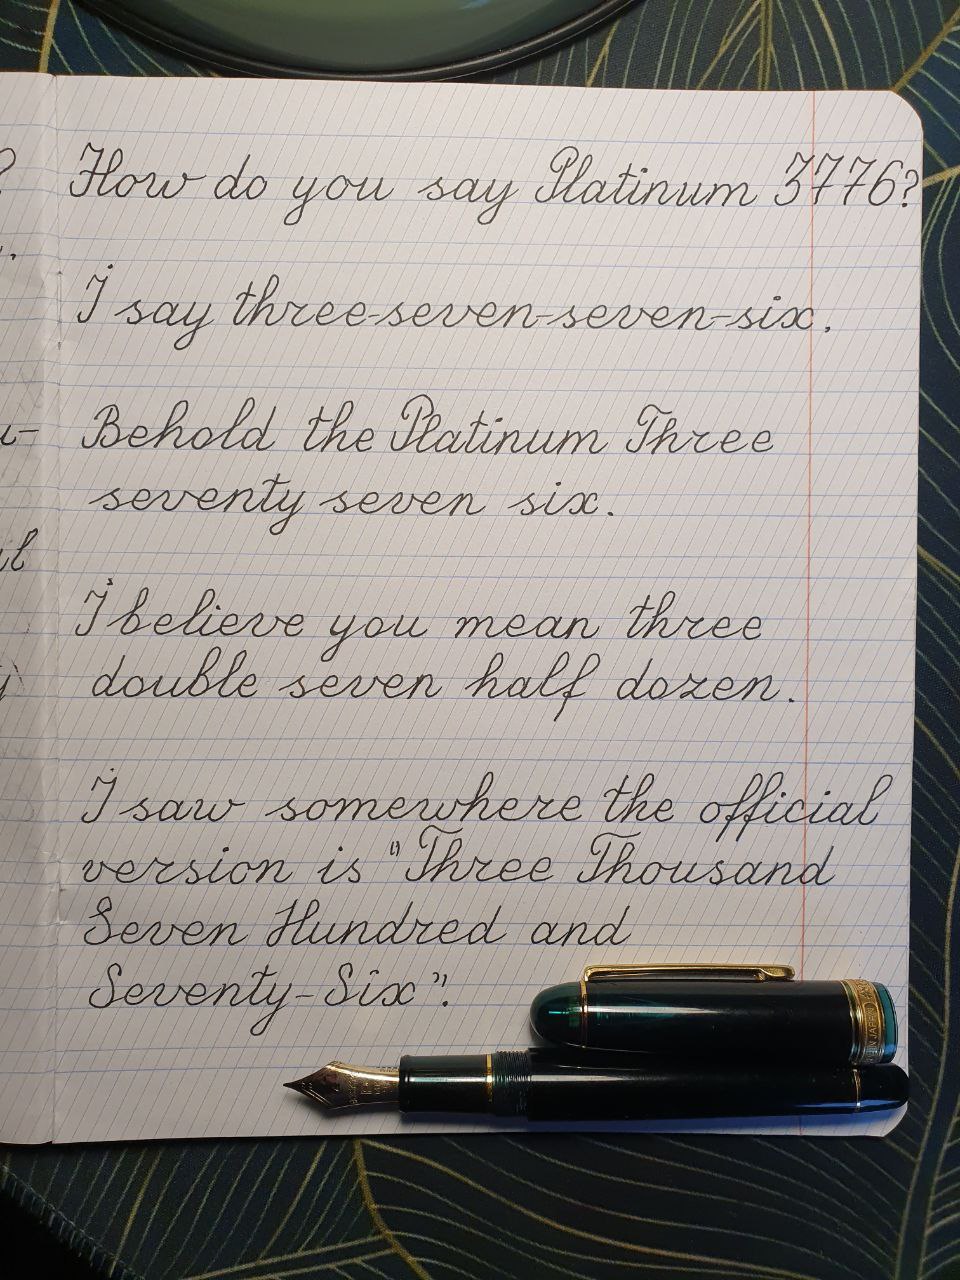 How do you say Platinum 3776?
I say three-seven-seven-six.
Behold the Platinum Three
seventy seven six.
I believe you mean three
double seven half dozen.
I saw somewhere the official
version is "Three Thousand
Seven Hundred and
Seventy-Six".